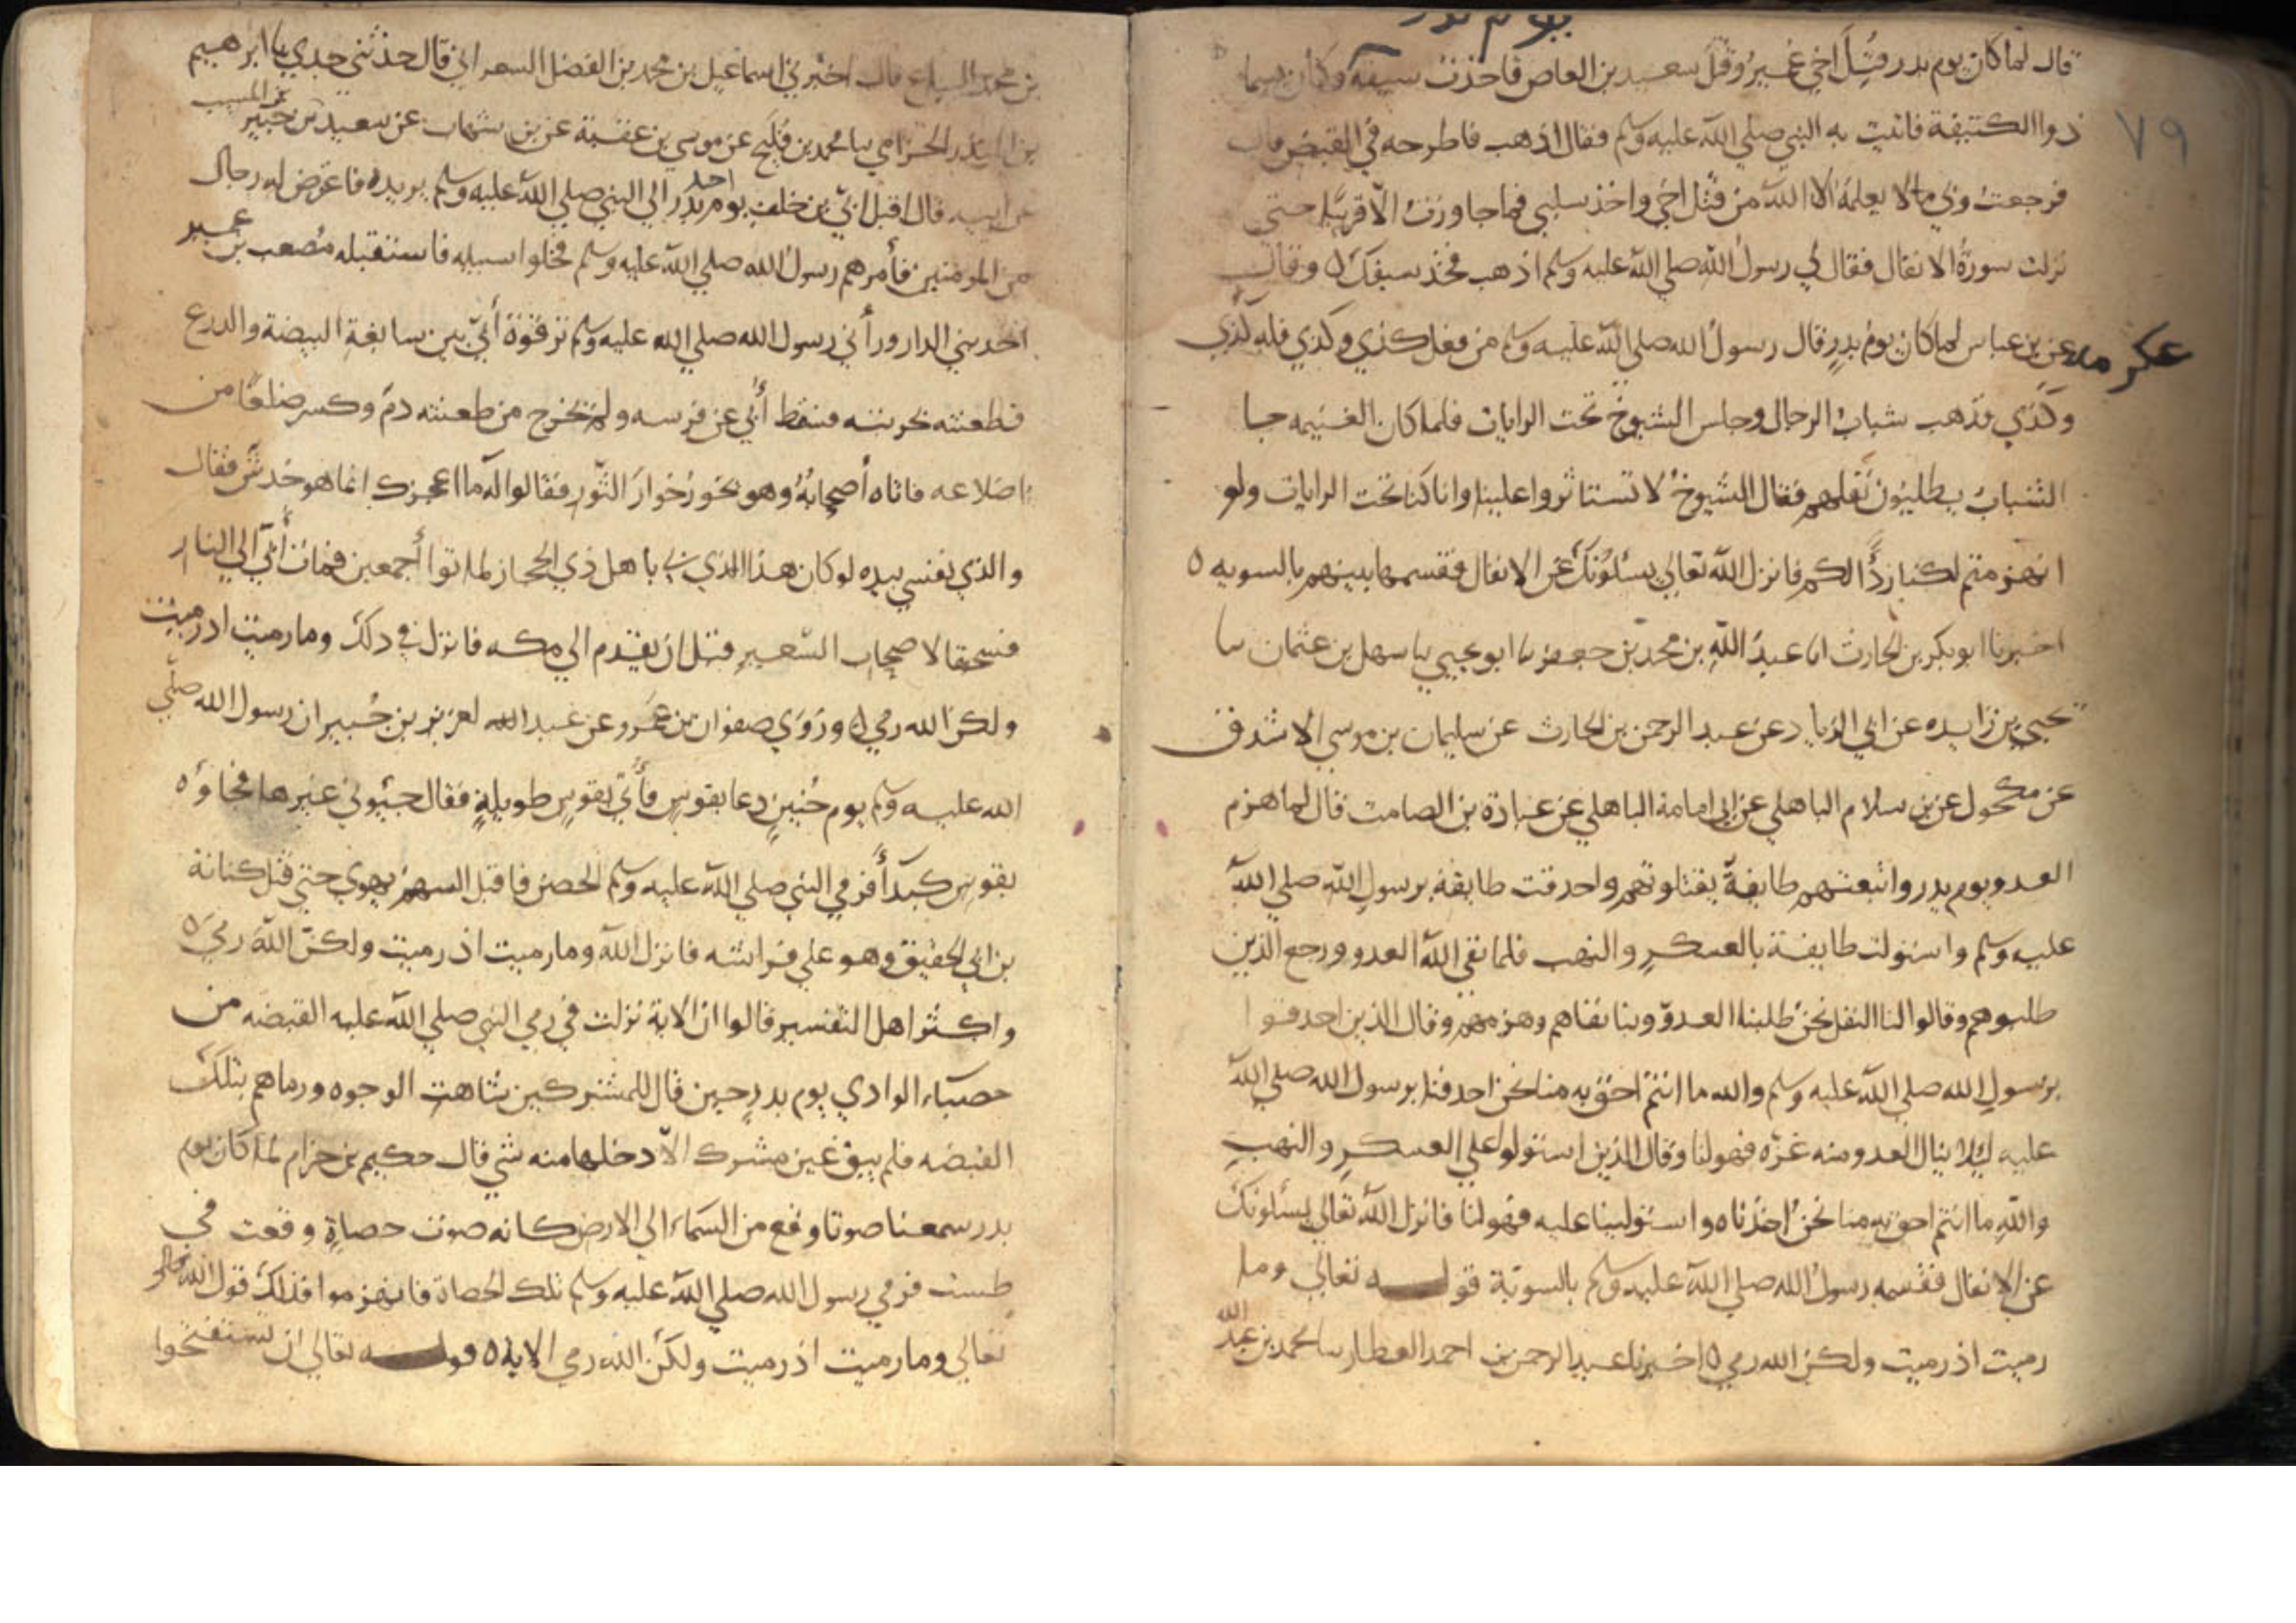 يوم بدر
قال لما كان يوم بدر قتل اخي عمير وقتل سعيد بن العاص فاخذت سيفه وكان يسما
٧٩
ذوا الكتيفة فاتيت به النبي صلي الله عليه وسلم فقال اذهب فاطرحه في القبض قال
فرجعت وبي ما لا يعلمه الا الله من قتل اخي واخذ سلبي فما جاوزت الا قريبا حتي
نزلت سورة الانفال فقال لي رسول الله صلي الله عليه وسلم اذهب فخذ سيفك ٥ وقال
عكرمه عن بن عباس لما كان يوم بدر قال رسول الله صلي الله عليه وسلم من فعل كذي وكذي فله كذي
وكذي فذهب شباب الرجال وجلس الشيوخ تحت الرايات فلما كان الغنيمه جا
الشباب يطلبون نفلهم فقال الشيوخ لا تستاثروا علينا وانا كنا تحت الرايات ولو
انهزمتم لكنا ردًا لكم فانزل الله تعالي يسئلونك عن الانفال فقسمها بينهم بالسويه ٥
اخبرنا ابو بكر بن الحارث انا عبد الله بن محمد بن جعفر نا ابو يحيي نا سهل بن عثمان نا
يحيي بن زايده عن ابي الزناد عن عبد الرحمن بن الحارث عن سليمان بن موسي الاشدق
عن مكحول عن بن سلام الباهلي عن ابي امامة الباهلي عن عبادة بن الصامت قال لما هزم
العدو يوم بدر واتبعتهم طايفة يقتلونهم واحدقت طايفة برسول الله صلي الله
عليه وسلم واستولت طايفة بالعسكر والنهب فلما نفي الله العدو ورجع الذين
طلبوهم وقالوا لنا النفل نحن طلبنا العدو وبنا نفاهم وهزمهم وقال الذين احدقوا
برسول الله صلي الله عليه وسلم والله ما انتم احق به منا نحن احدقنا برسول الله صلي الله
عليه ليلا ينال العدو منه غرّه فهو لنا وقال الذين استولوا علي العسكر والنهب
والله ما انتم احق به منا نحن اخذناه واستولينا عليه فهو لنا فانزل الله تعالي يسئلونك
عن الانفال فقسمه رسول الله صلي الله عليه وسلم بالسوية قولـــه تعالي وما
رميت اذ رميت ولكن الله رمي ٥ اخبرنا عبد الرحمن بن احمد العطار نا محمد بن عبد الله
بن محمد البياع قال اخبرني اسماعيل بن محمد بن الفضل الشعراني قال حدثني جدي نا ابرهيم
بن المنذر الحزامي نا محمد بن فليح عن موسي بن عقبة عن بن شهاب عن سعيد بن جبير بن المسيب
عن ابيه قال اقبل ابيّ بن خلف يوم بدر احد الي النبي صلي الله عليه وسلم يريده فاعترض له رجال
من المومنين فأمرهم رسول الله صلي الله عليه وسلم فخلوا سبيله فاستقبله مصعب بن عمير
احد بني الدار ورأي رسول الله صلي الله عليه وسلم ترقوة أبيّ بين سابغة البيضة والدرع
فطعنته بحربته فسقط أبي عن فرسه ولم يخرج من طعنته دم وكسر ضلعًا من
اضلاعه فاتاه أصحابه وهو يخور خوار الثّور فقالوا له ما اعجزك انما هو خدش فقال
والذي نفسي بيده لو كان هذا الذي بي باهل ذي المجاز لماتوا أجمعين فمات أبيّ الي النار
فسحقا لاصحاب السّعير قبل ان يقدم الي مكه فانزل في ذلك وما رميت اذ رميت
ولكن الله رمي ٥ وروي صفوان بن عمرو عن عبد الله لعزيز بن جبير ان رسول الله صلّي
الله عليه وسلم يوم حنين دعا بقوس فأتي بقوس طويلة فقال جيوني غيرها فجاؤه
بقوس كبدأ فرمي النبي صلي الله عليه وسلم الحصن فاقبل السهم يهوي حتي قتل كنانة
بن ابي الحقيق وهو علي فراشه فانزل الله وما رميت اذ رميت ولكنّ الله رمي ٥
واكثر اهل التفسير قالوا ان الاية نزلت في رمي النبي صلي الله عليه القبضه من
حصباء الوادي يوم بدر حين قال للمشركين شاهت الوجوه ورماهم بتلك
القبضه فلم يبق عين مشرك الا دخلها منه شي قال حكيم بن حزام لما كان يوم
بدر سمعنا صوتا وقع من السماء الي الارض كانه صوت حصاة وقعت في
طست فرمي رسول الله صلي الله عليه وسلم تلك الحصاة فانهزموا فذلك قول الله
تعالي وما رميت اذ رميت ولكن الله رمي الايه ٥ قولـــه تعالي ان تستفتحوا